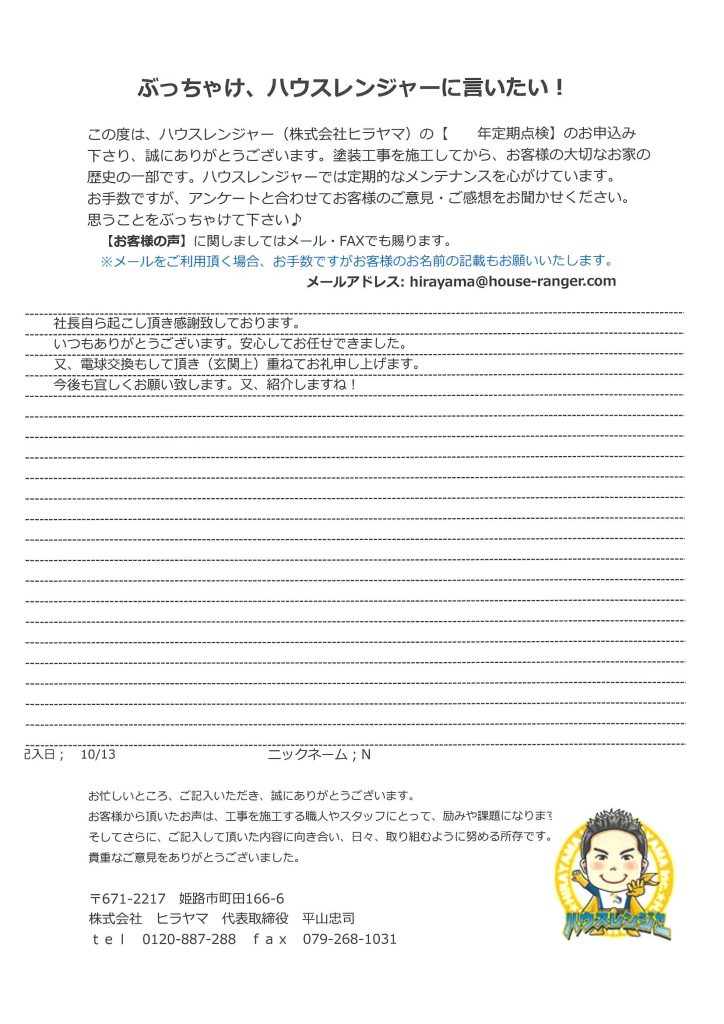 ぶっちゃけ、ハウスレンジャーに言いたい！
この度は、ハウスレンジャー（株式会社ヒラヤマ）の【　　年定期点検】のお申込み
下さり、誠にありがとうございます。塗装工事を施工してから、お客様の大切なお家の
歴史の一部です。ハウスレンジャーでは定期的なメンテナンスを心がけています。
お手数ですが、アンケートと合わせてお客様のご意見・ご感想をお聞かせください。
思うことをぶっちゃけて下さい♪
【お客様の声】に関しましてはメール・FAXでも賜ります。
※メールをご利用頂く場合、お手数ですがお客様のお名前の記載もお願いいたします。
メールアドレス: hirayama@house-ranger.com
社長自ら起こし頂き感謝致しております。
いつもありがとうございます。安心してお任せできました。
又、電球交換もして頂き（玄関上）重ねてお礼申し上げます。
今後も宜しくお願い致します。又、紹介しますね！
記入日；　10/13　　ニックネーム；N
お忙しいところ、ご記入いただき、誠にありがとうございます。
お客様から頂いたお声は、工事を施工する職人やスタッフにとって、励みや課題になります
そしてさらに、ご記入して頂いた内容に向き合い、日々、取り組むように努める所存です。
貴重なご意見をありがとうございました。
〒671-2217　姫路市町田166-6
株式会社　ヒラヤマ　代表取締役　平山忠司
ｔｅｌ　0120-887-288　ｆａｘ　079-268-1031
HIRAYAMA
ハウスレンジャー